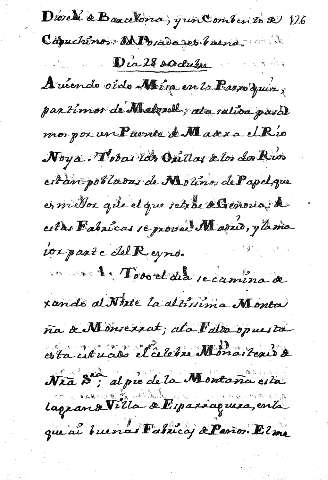 Dioresi de Barcelona; y un Combento de 126
Capuchinos: la Posada es buena.
Dia 28 de Octubre
Aviendo oido Misa en la Parroquia,
partimos de Matrell; a la salida pasa
mos por un Puente de Madera el Rio
Noya. Todas las Orillas de los dos Rios
estan pobladas de Molinos de Papel, que
es millor que el que se trae de Genova: de
estas Fabricas se provee Madrid, y la ma
ior parte del Reyno.
Todo el dia se camina de
xando al Nrte la altissima Monta
ña de Monserrat; a la Falda opuesta
esta cituado el celebre Monasterio de
Nra Sra; al pie de la Montaña esta
la gran de Villa de Esparraguera, en la
que ai buenas Fabricas de Paños. El me